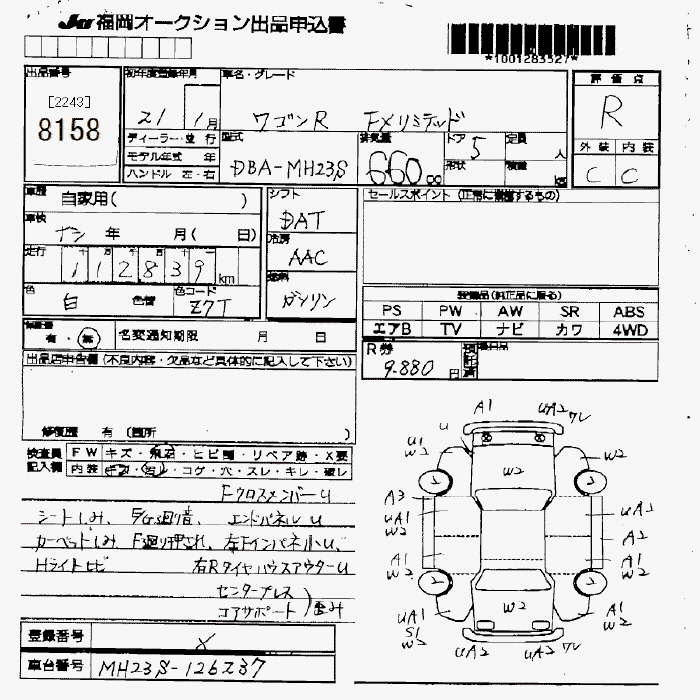 JU 福岡オークション出品申込書
*1001283527*
出品番号
[2243]
8158
初年度登録年月
21 1月
車名・グレード
ワゴンR FXリミテッド
評価点
R
外装 内装
C C
ディーラー・並行
モデル年式 年
ハンドル 左・右
型式
DBA-MH23S
排気量
660.00
ドア 5
形状
定員 人
積量 kg
車歴
自家用( )
車検
ナシ 年 月( 日)
走行
112839km
色
白 色替
色コード
Z7T
シフト
DAT
冷房
AAC
燃料
ガソリン
セールスポイント (正常に稼働するもの)
装備品(純正品に限る)
PS PW AW SR ABS
エアB TV ナビ カワ 4WD
保証書
有・無
名変通知期限 月 日
R券
9.880円
預託済
出品店申告欄(不良内容・欠品など具体的に記入して下さい)
修復歴 有 (箇所 )
検査員記入欄
FW キズ・飛石・ヒビ・リペア跡・X要
内装 キズ・汚レ・コゲ・穴・スレ・キレ・破レ
FクロスメンバーU
シートしみ、 エンドパネルU
カーペットしみ、F廻り押され、左FインパネルU、
Hライトヒビ 右RタイヤハウスアウターU
センタープレス
コアサポート 歪み
登録番号 X
車台番号 MH23S-126237
A1 UA2 ワレ
U
U1 W2
W2
W2
A3
UA1 W2
UA2
A2
A1 W2
A1 W2
W2
UA1 S1 W2
A1 W2
UA2 UA2 ワレ